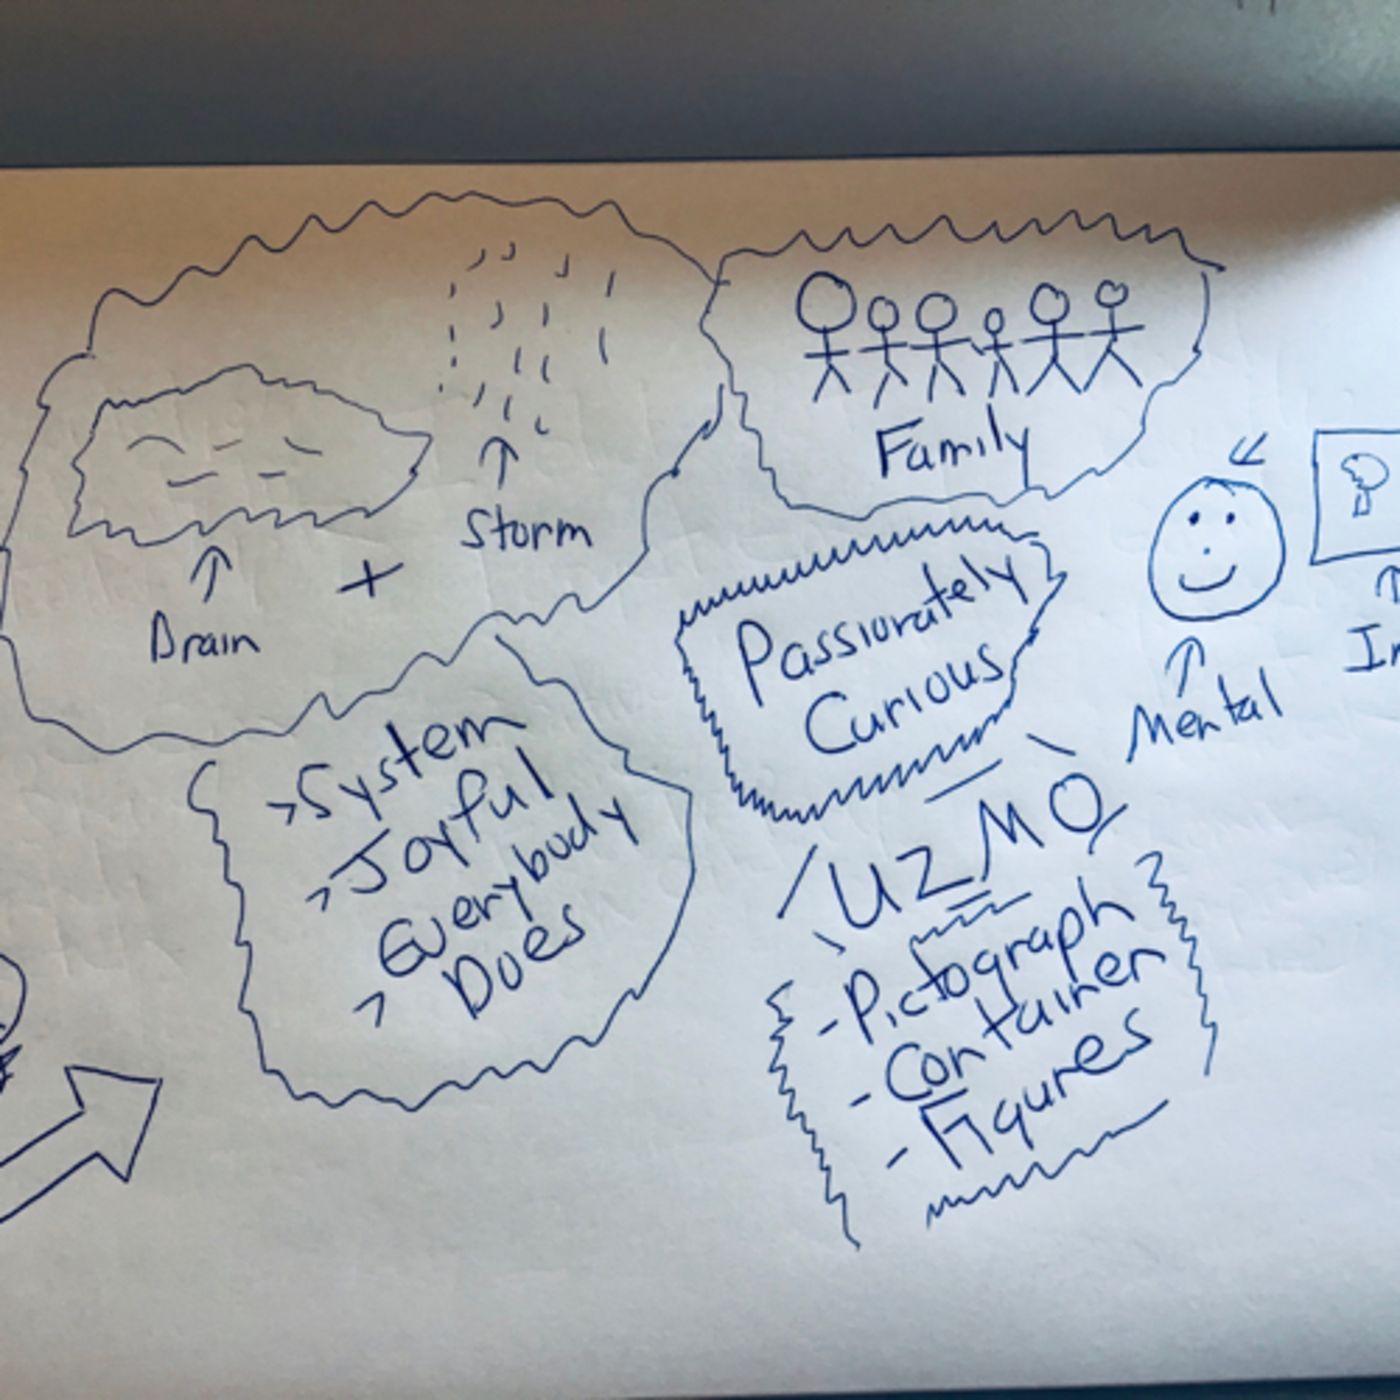 Brain
+
Storm
Family
Passionately
Curious
Mental
>System
>Joyful
Everybody
> Does
UZMO
-Pictograph
-Container
-Figures